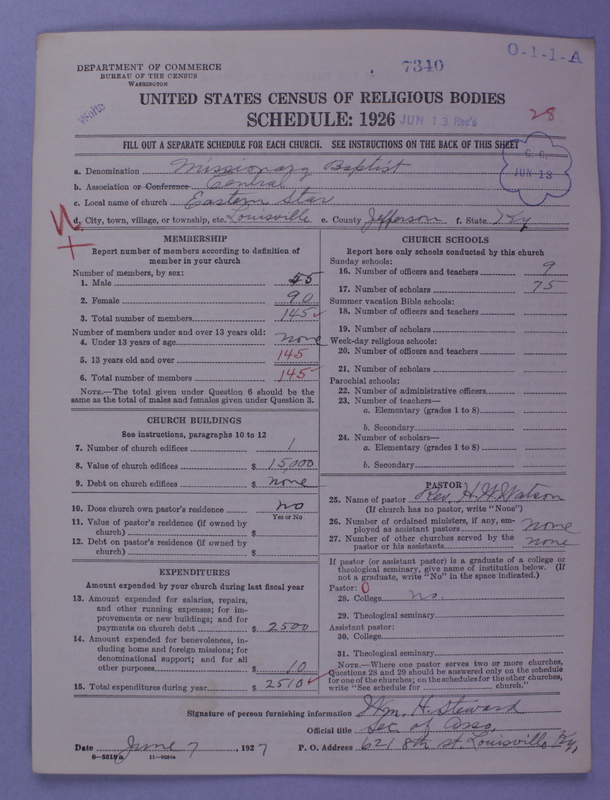 DEPARTMENT OF COMMERCE
BUREAU OF THE CENSUS
WASHINGTON
7340
O-1-1-A
White
UNITED STATES CENSUS OF RELIGIOUS BODIES
SCHEDULE: 1926
JUN 13 Rec'd
28
FILL OUT A SEPARATE SCHEDULE FOR EACH CHURCH. SEE INSTRUCTIONS ON THE BACK OF THIS SHEET
JUN 13
a. Denomination Missionary Baptist
b. Association or Conference Central
c. Local name of church Eastern Star
d. City, town, village, or township, etc. Louisville e. County Jefferson f. State Ky
MEMBERSHIP
Report number of members according to definition of
member in your church
Number of members, by sex:
1. Male 55
2. Female 90
3. Total number of members 145
Number of members under and over 13 years old:
4. Under 13 years of age none
5. 13 years old and over 145
6. Total number of members 145
NOTE.—The total given under Question 6 should be the
same as the total of males and females given under Question 3.
CHURCH BUILDINGS
See instructions, paragraphs 10 to 12
7. Number of church edifices 1
8. Value of church edifices $ 15,000
9. Debt on church edifices $ none
10. Does church own pastor's residence no
Yes or No
11. Value of pastor's residence (if owned by
church) $
12. Debt on pastor's residence (if owned by
church) $
EXPENDITURES
Amount expended by your church during last fiscal year
13. Amount expended for salaries, repairs,
and other running expenses; for im-
provements or new buildings; and for
payments on church debt $ 2500
14. Amount expended for benevolences, in-
cluding home and foreign missions; for
denominational support; and for all
other purposes $ 10
15. Total expenditures during year $ 2510
CHURCH SCHOOLS
Report here only schools conducted by this church
Sunday schools:
16. Number of officers and teachers 9
17. Number of scholars 75
Summer vacation Bible schools:
18. Number of officers and teachers
19. Number of scholars
Week-day religious schools:
20. Number of officers and teachers
21. Number of scholars
Parochial schools:
22. Number of administrative officers
23. Number of teachers—
a. Elementary (grades 1 to 8)
b. Secondary
24. Number of scholars—
a. Elementary (grades 1 to 8)
b. Secondary
PASTOR
25. Name of pastor Rev. H. W. Watson
(If church has no pastor, write "None")
26. Number of ordained ministers, if any, em-
ployed as assistant pastors none
27. Number of other churches served by the
pastor or his assistants none
If pastor (or assistant pastor) is a graduate of a college or
theological seminary, give name of institution below. (If
not a graduate, write "No" in the space indicated.)
Pastor: 0
28. College no
29. Theological seminary
Assistant pastor:
30. College
31. Theological seminary
NOTE.—Where one pastor serves two or more churches,
Questions 28 and 29 should be answered only on the schedule
for one of the churches; on the schedules for the other churches,
write "See schedule for church."
Signature of person furnishing information Wm. H. Steward
Official title Sec. of Asso.
Date June 7, 1927 P. O. Address 621 8th st. Louisville, Ky.
8—5519a 11—9084a